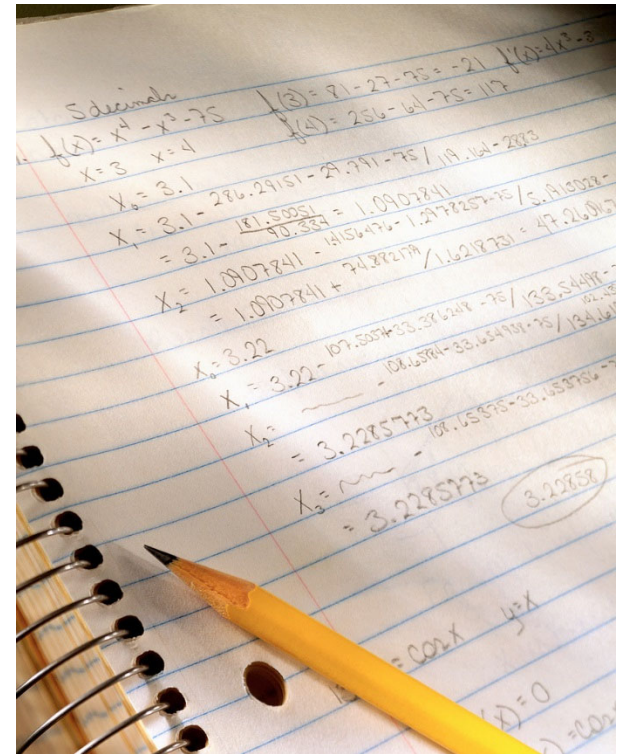 5 decimals
1. f(x) = x⁴ - x³ - 75 f(3) = 81 - 27 - 75 = -21 f'(x) = 4x³ - 3
x = 3 x = 4 f(4) = 256 - 64 - 75 = 117
X₀ = 3.1
X₁ = 3.1 - 286.29151 - 29.791 - 75 / 119.164 - 2883
= 3.1 - 181.50051 / 90.334 = 1.0907841
X₂ = 1.0907841 - 1.4156476 - 1.2978257 - 75 / 5.1913028 -
= 1.0907841 + 74.882179 / 1.6218731 = 47.26067
X₀ = 3.22
X₁ = 3.22 - 107.5057 - 33.386248 - 75 / 133.54498 -
X₂ = - 108.65984 - 33.654938 - 75 / 134.61
= 3.2285773
X₃ = - 108.65375 - 33.653756 -
= 3.2285773 3.22858
= cosx y = x
(x) = 0
) = cos